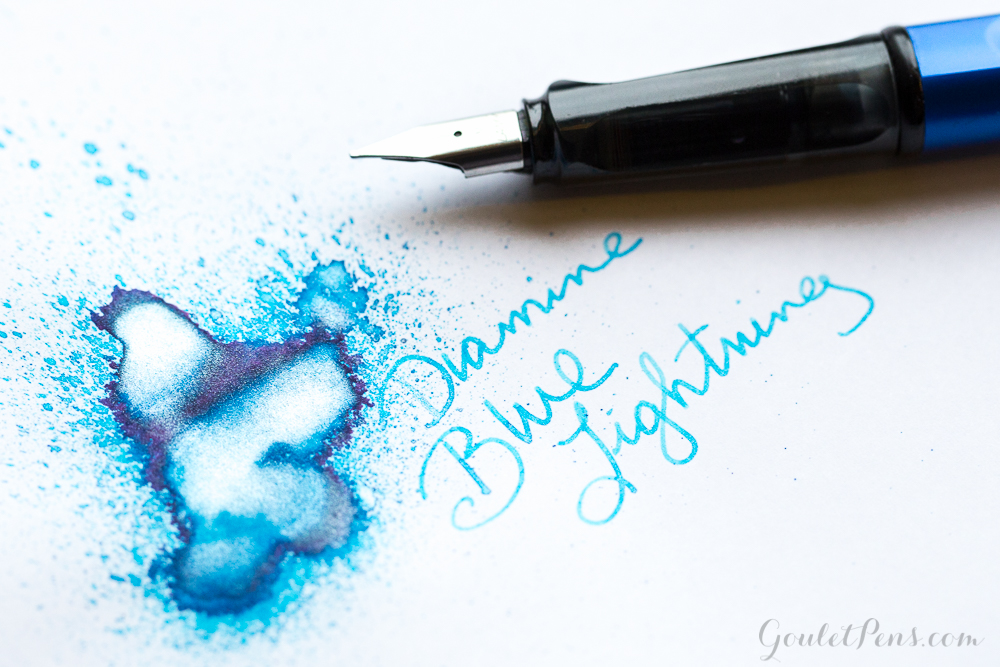 Diamine
Blue
Lightning
GouletPens.com